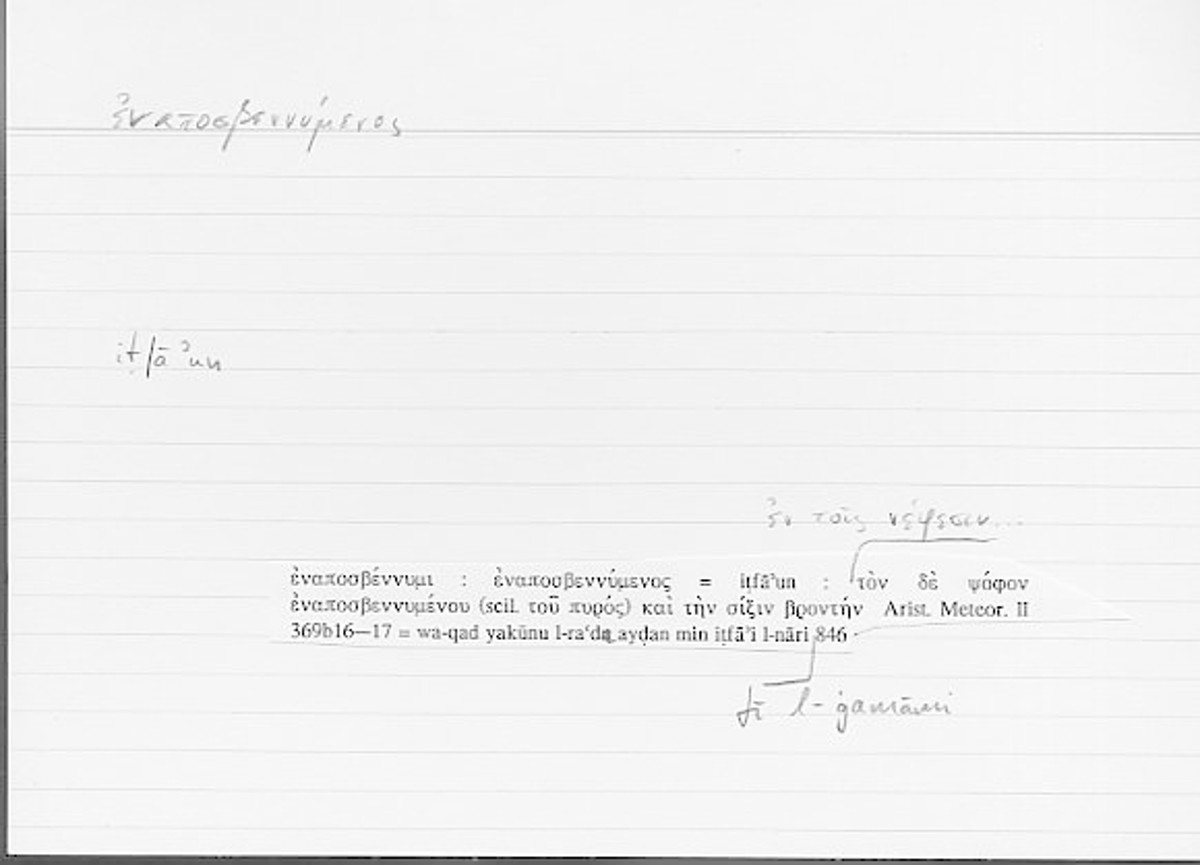 ἐναποσβεννύμενος
iṭfāʾun
ἐν τοῖς νέφεσιν...
ἐναποσβέννυμι : ἐναποσβεννύμενος = iṭfāʾun : τὸν δὲ ψόφον
ἐναποσβεννυμένου (scil. τοῦ πυρός) καὶ τὴν σίξιν βροντήν Arist. Meteor. II
369b16—17 = wa-qad yakūnu l-raʿdu ayḍan min iṭfāʾi l-nāri 846
fī l-ġamāmi